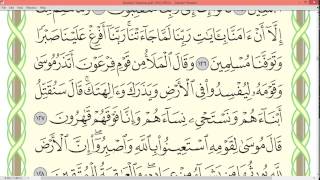 إِلَّآ أَنْ ءَامَنَّا بِـَٔايَـٰتِ رَبِّنَا لَمَّا جَآءَتْنَا ۚ رَبَّنَآ أَفْرِغْ عَلَيْنَا صَبْرًا
وَتَوَفَّنَا مُسْلِمِينَ ١٢٦ وَقَالَ ٱلْمَلَأُ مِن قَوْمِ فِرْعَوْنَ أَتَذَرُ مُوسَىٰ
وَقَوْمَهُۥ لِيُفْسِدُوا۟ فِى ٱلْأَرْضِ وَيَذَرَكَ وَءَالِهَتَكَ ۚ قَالَ سَنُقَتِّلُ
أَبْنَآءَهُمْ وَنَسْتَحْىِۦ نِسَآءَهُمْ وَإِنَّا فَوْقَهُمْ قَـٰهِرُونَ ١٢٧
قَالَ مُوسَىٰ لِقَوْمِهِ ٱسْتَعِينُوا۟ بِٱللَّهِ وَٱصْبِرُوٓا۟ ۖ إِنَّ ٱلْأَرْضَ